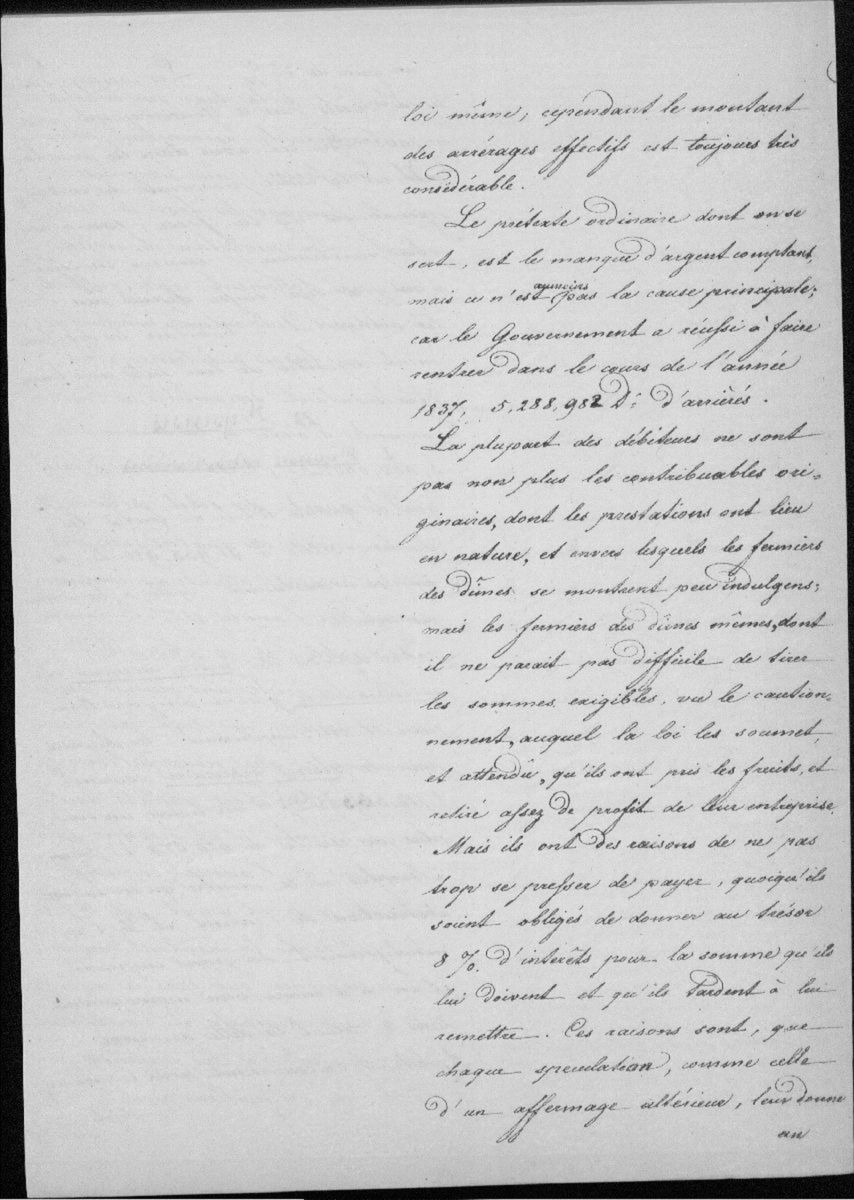 loi même; cependant le montant
des arrérages effectifs est toujours très
considérable.
Le prétexte ordinaire dont on se
sert, est le manque d'argent comptant,
mais ce n'est pas la cause principale;
car le Gouvernement a réussi à faire
rentrer dans le cours de l'année
1837, 5,288,982 D: d'arriérés.
La plupart des débiteurs ne sont
pas non plus les contribuables ori-
ginaires, dont les prestations ont lieu
en nature, et envers lesquels les fermiers
des dîmes se montrent peu indulgens;
mais les fermiers des dîmes mêmes, dont
il ne parait pas difficile de tirer
les sommes exigibles, vu le caution-
nement, auquel la loi les soumet,
et attendu, qu'ils ont pris les fruits, et
retiré assez de profit de leur entreprise.
Mais ils ont des raisons de ne pas
trop se presser de payer, quoiqu'ils
soient obligés de donner au trésor
8 %. d'intérêts pour la somme qu'ils
lui doivent et qu'ils tardent à lui
remettre. Ces raisons sont, que
chaque speculation, comme celle
d'un affermage ultérieur, leur donne
un